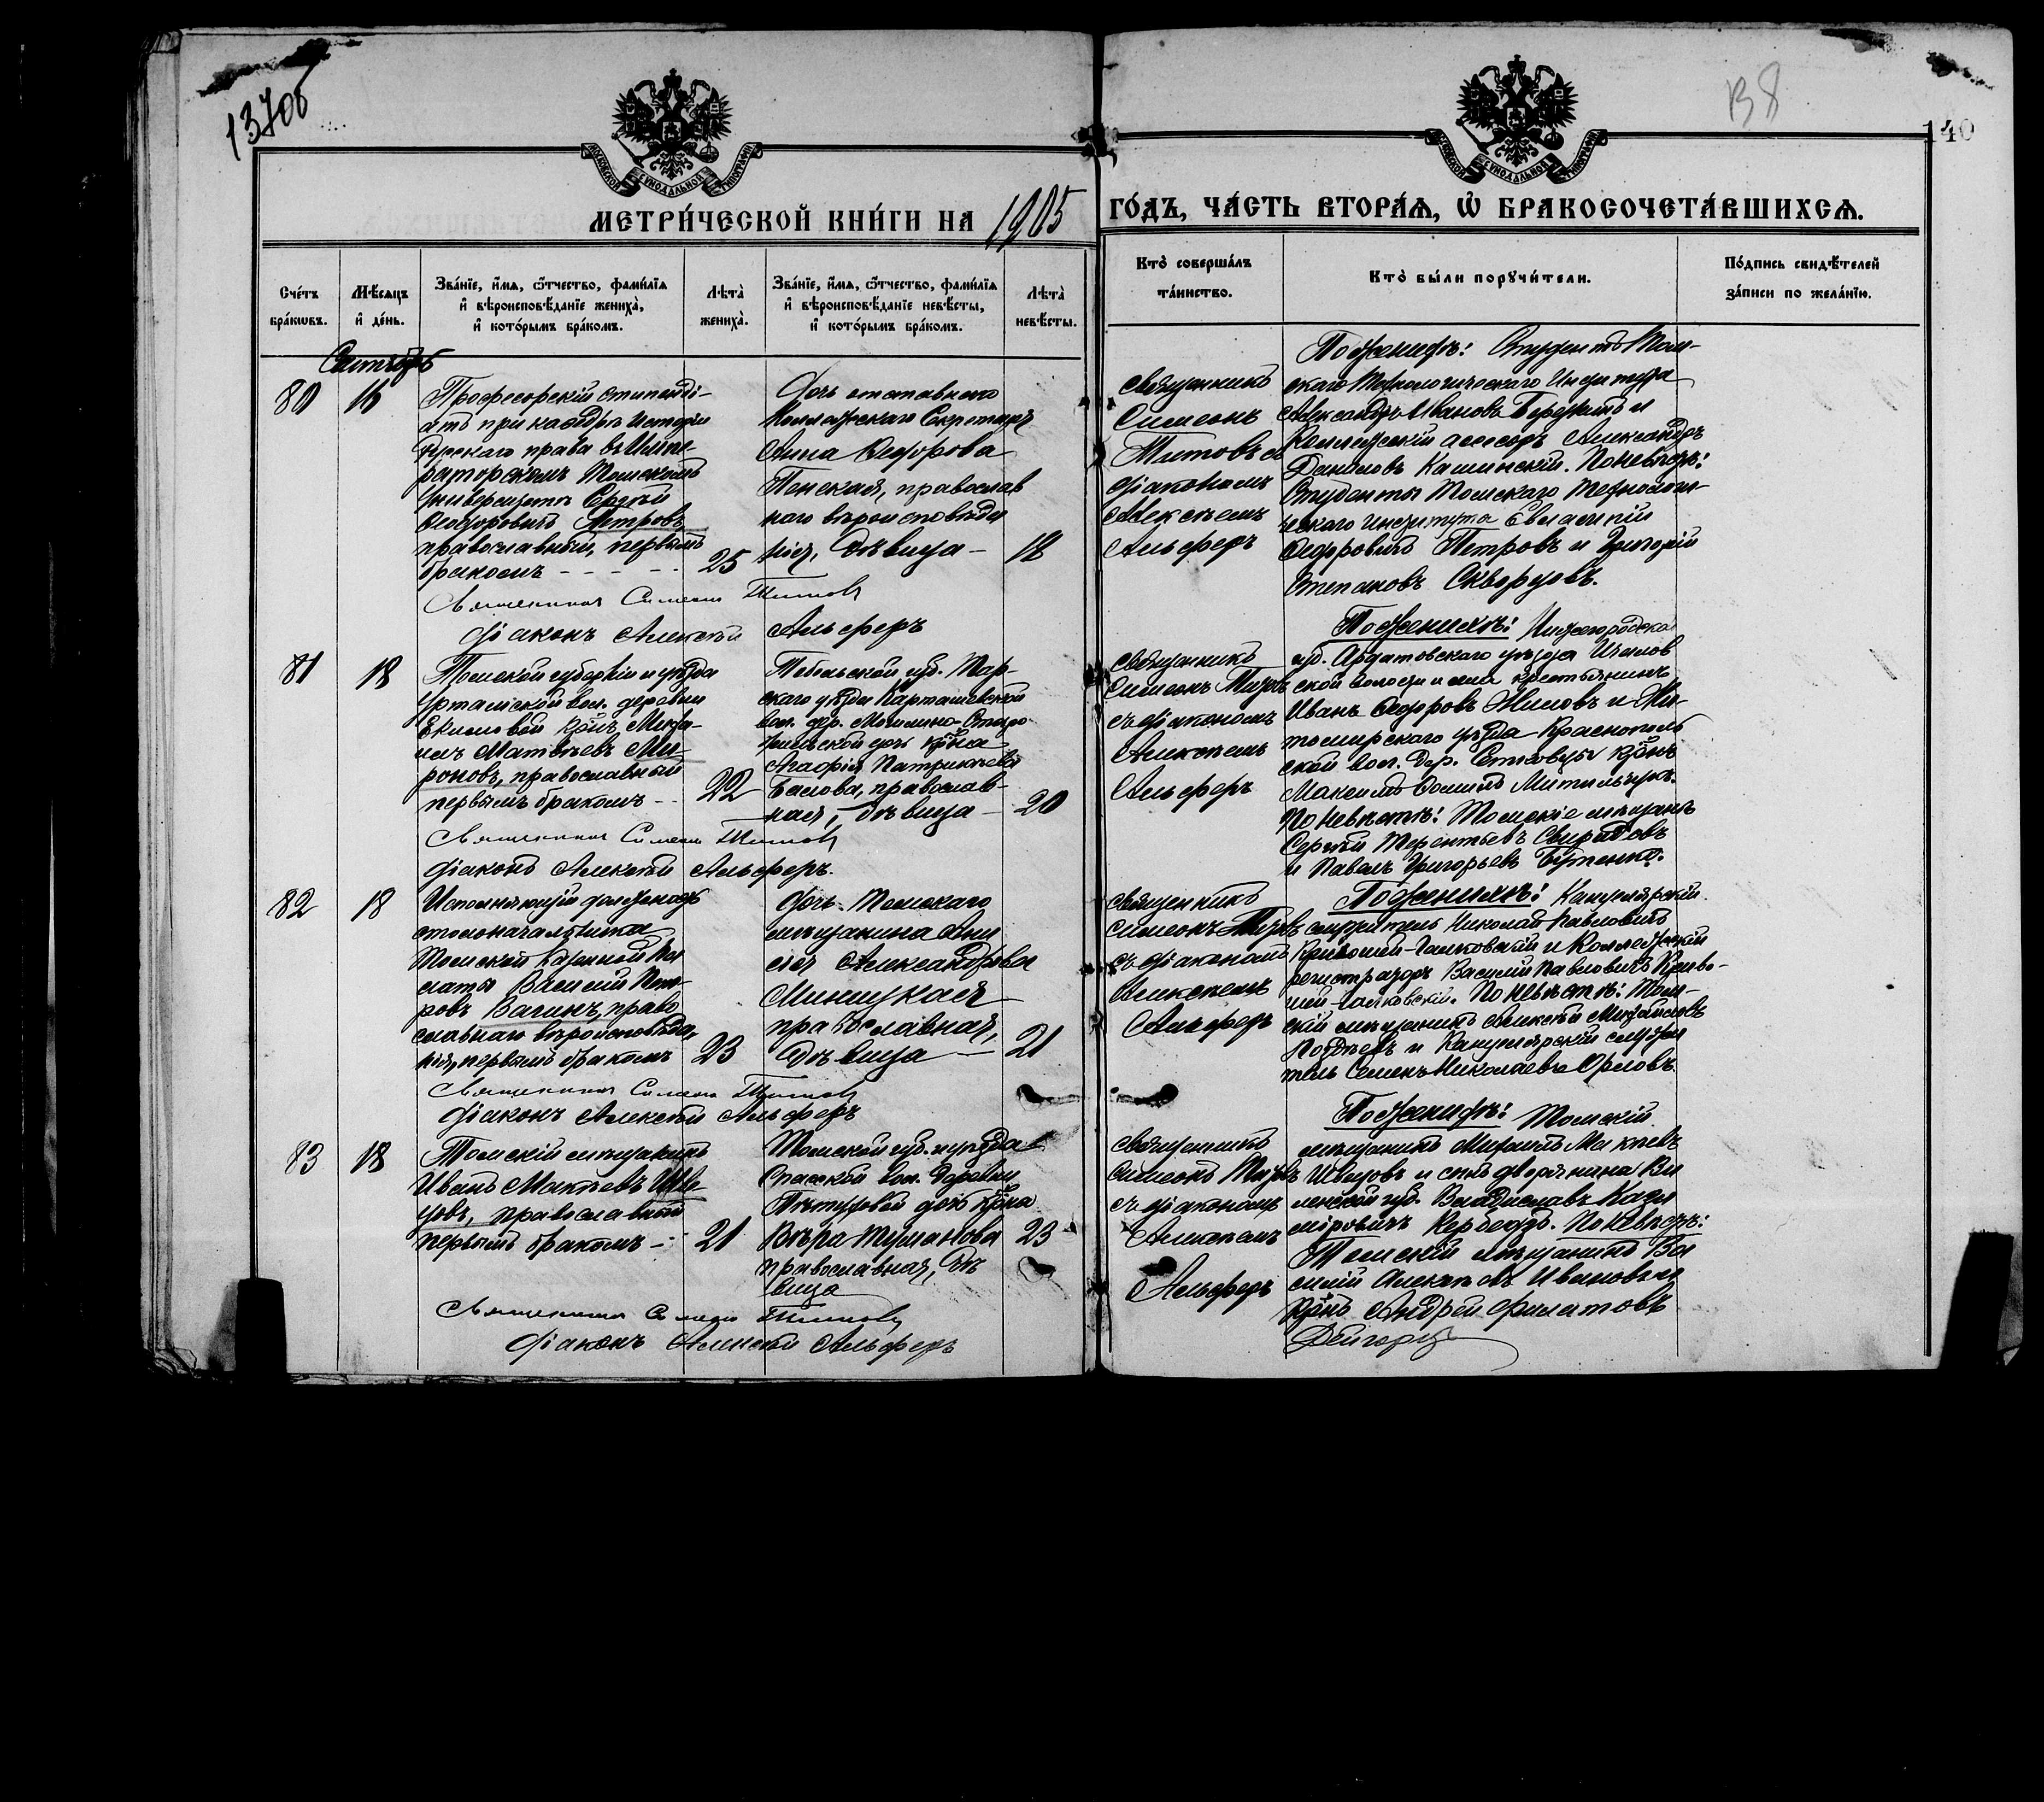 1370б
В8
140
МОСКОВСКОЙ СѴНОДАЛЬНОЙ ТИПОГРАФІИ
МОСКОВСКОЙ СѴНОДАЛЬНОЙ ТИПОГРАФІИ
МЕТРИ́ЧЕСКОЙ КНИ́ГИ НА 1905 ГО́ДЪ, ЧА́СТЬ ВТОРА́Ѧ, Ѡ҆ БРАКОСОЧЕТА́ВШИХСѦ.
Сче́тъ бра́кѡвъ.
Мѣ́сѧцъ и҆ де́нь.
Зва́нїе, и҆́мѧ, ѻ҆́тчество, фами́лїѧ и҆ вѣроисповѣ́данїе женихà, и҆ кото́рымъ бра́комъ.
Лѣтà женихà.
Зва́нїе, и҆́мѧ, ѻ҆́тчество, фами́лїѧ и҆ вѣроисповѣ́данїе невѣ́сты, и҆ кото́рымъ бра́комъ.
Лѣтà невѣ́сты.
Кто̀ соверша́лъ та́инство.
Кто̀ бы́ли порꙋчи́тели.
По́дпись свидѣ́телей за́писи по жела́нїю.
Сентябрь
80
16
Профессорскій стипенді-
атъ при каѳедрѣ исторіи
русскаго права въ Импе-
раторскомъ Томскомъ
Университетѣ Сергѣй
Ѳеодоровичъ Петровъ
православный, первымъ
бракомъ
25
Дочь отставного
Коллежскаго Секретаря
Анна Ѳедорова
Пенская, православ
наго вѣроисповѣда
нія, дѣвица
18
Священникъ
Симеонъ
Титовъ съ
діакономъ
Алексѣемъ
Альферъ
По женихѣ: Студентъ Том-
скаго Технологическаго Института
Александръ Ивановъ и
Коллежскій асессоръ Александръ
Даниловъ Кашинскій. По невѣстѣ:
Студенты Томскаго Технологи-
ческаго Института Евлампій
Ѳедоровичъ Петровъ и Григорій
Степановъ Скворцовъ.
Священникъ Симеонъ Титовъ
Діаконъ Алексѣй Альферъ
81
18
Томской губерніи и уѣзда
Уртамской вол. деревни
Екимовой кр̃нъ Миха-
илъ Матвѣевъ Ми-
роновъ, православный
первымъ бракомъ
22
Тобольской губ. Тар-
скаго уѣзда Карташевской
вол. дер. Могилино-Старо-
дочь кр̃на
Агафія Патрикѣева
Баслова, православ-
ная, дѣвица
20
Священникъ
Симеонъ Титовъ
съ діакономъ
Алексѣемъ
Альферъ
По женихѣ: Нижегородской
губ. Ардатовскаго уѣзда
ской волости и села крестьянинъ
Иванъ Ѳедоровъ Жиловъ и Жи-
томирскаго уѣзда Краснополь
ской вол. дер. кр̃нъ
Максимъ
По невѣстѣ: Томскіе мѣщане
Сергѣй Терентьевъ Свиридовъ
и Павелъ Григорьевъ Бутенко.
Священникъ Симеонъ Титовъ
Діаконъ Алексѣй Альферъ.
82
18
Исполняющій должность
столоначальника
Томской Казенной Па
латы Василій Пет-
ровъ Вагинъ, право
славнаго вѣроисповѣда-
нія, первымъ бракомъ
23
Дочь Томскаго
мѣщанина Ани
сія Александрова
Миницкая
православная,
дѣвица
21
Священникъ
Симеонъ Титовъ
съ діакономъ
Алексѣемъ
Альферъ
По женихѣ: Канцелярскій
служитель Николай Павловичъ
Кривошей-Галковскій и Коллежскій
регистраторъ Василій Павловичъ Криво-
шей-Галковскій. По невѣстѣ: Том-
скій мѣщанинъ Алексѣй Михайловъ
Поздѣевъ и Канцелярскій служи
тель Семенъ Николаевъ Орловъ.
Священникъ Симеонъ Титовъ
Діаконъ Алексѣй Альферъ
83
18
Томскій мѣщанинъ
Иванъ Мокѣевъ Шве
цовъ, православный
первымъ бракомъ
21
Томской губ. и уѣзда
Спасской вол. деревни
Пѣтуховой дочь кр̃на
Вѣра Туманова
православная, дѣ
вица
23
Священникъ
Симеонъ Титовъ
съ діакономъ
Алексѣемъ
Альферъ
По женихѣ: Томскій
мѣщанинъ Михаилъ Мокѣевъ
Швецовъ и сынъ дворянина Ви
ленской губ. Владиславъ Кази
міровичъ По невѣстѣ:
Томскій мѣщанинъ Ва
силій Ивановъ и
кр̃нъ Андрей Филатовъ
Священникъ Симеонъ Титовъ
Діаконъ Алексѣй Альферъ